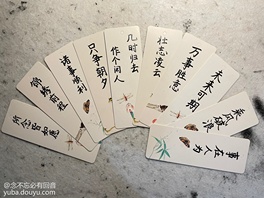 所念皆如愿
锦绣前程
诸事顺利
只争朝夕
几时归去
作个闲人
壮志凌云
万事胜意
未来可期
乘风破浪
事在人为
@念不忘必有回响
yuba.douyu.com